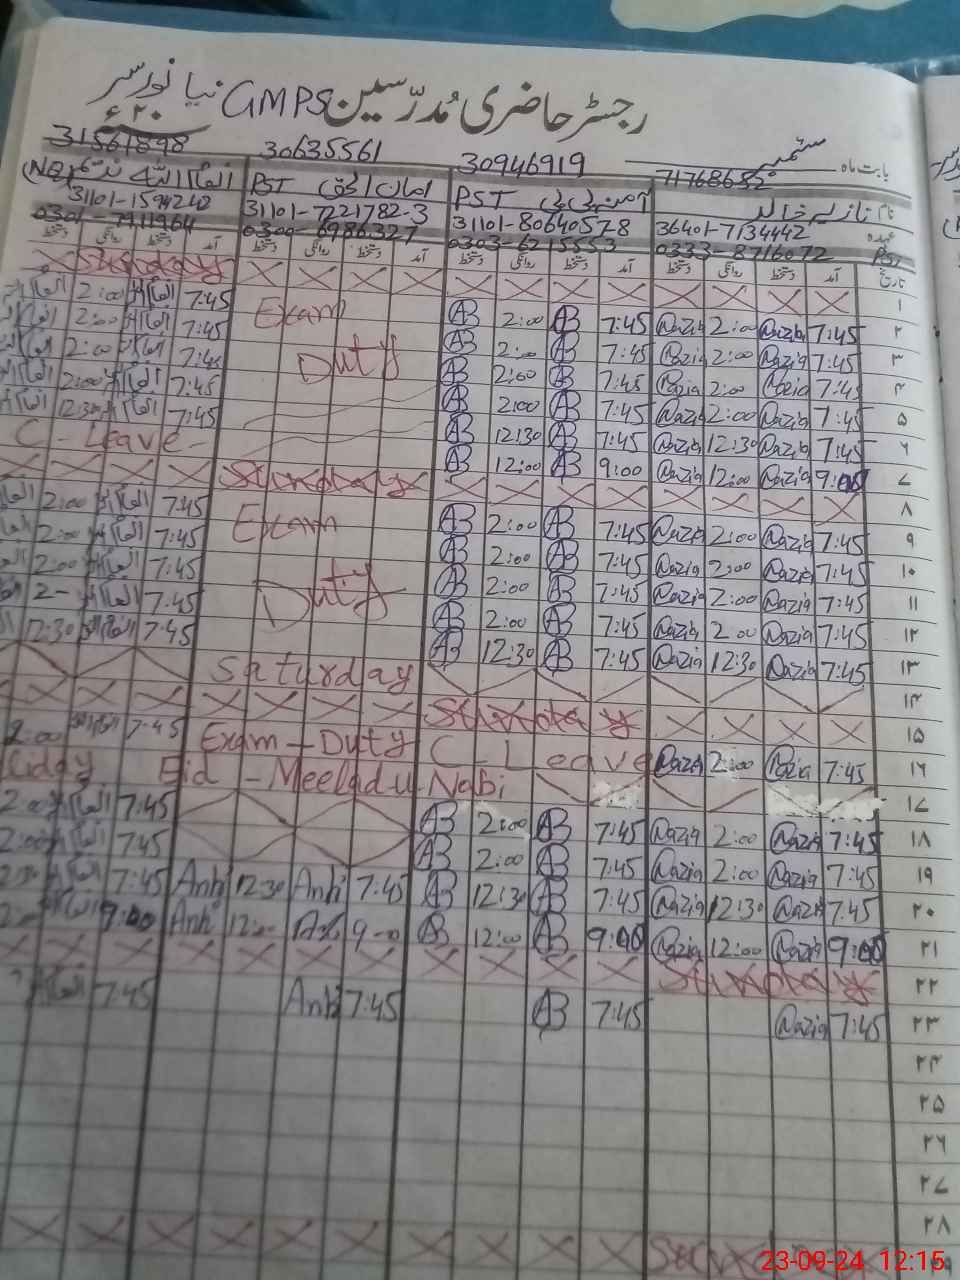 رجسٹر حاضری مُدرّسین GMPS نیا نور سر
بابت ماہ ستمبر
71768652 30946919 30635561 31561898
نام نازیہ خالد PST آمنہ بی بی PST امان الحق
عہدہ PST 36401-7134442 31101-8064057-8 31101-7221782-3
0333-8716072 0303-6215553 0300-6986327
تاریخ آمد دستخط روانگی دستخط آمد دستخط روانگی دستخط آمد دستخط روانگی دستخط آمد دستخط روانگی دستخط
۱ Sunday
۲ 7:45 Nazia 2:00 Nazia 7:45 AB 2:00 AB Exam 7:45 2:00
۳ 7:45 Nazia 2:00 Nazia 7:45 AB 2:00 AB Duty 7:45 2:00
۴ 7:45 Nazia 2:00 Nazia 7:45 AB 2:00 AB 7:45 2:00
۵ 7:45 Nazia 2:00 Nazia 7:45 AB 2:00 AB 7:45 2:00
۶ 7:45 Nazia 12:30 Nazia 7:45 AB 12:30 AB 7:45 12:30
۷ 9:00 Nazia 12:00 Nazia 9:00 AB 12:00 AB C-Leave
۸ Sunday
۹ 7:45 Nazia 2:00 Nazia 7:45 AB 2:00 AB Exam 7:45 2:00
۱۰ 7:45 Nazia 2:00 Nazia 7:45 AB 2:00 AB 7:45 2:00
۱۱ 7:45 Nazia 2:00 Nazia 7:45 AB 2:00 AB Duty 7:45 2:00
۱۲ 7:45 Nazia 2:00 Nazia 7:45 AB 2:00 AB 7:45 2-
۱۳ 7:45 Nazia 12:30 Nazia 7:45 AB 12:30 AB 7:45 12:30
۱۴ Saturday
۱۵ Sunday
۱۶ 7:45 Nazia 2:00 Nazia C-Leave Exam-Duty 7:45 2:00
۱۷ Eid-Meelad-u-Nabi
۱۸ 7:45 Nazia 2:00 Nazia 7:45 AB 2:00 AB 7:45 2:00
۱۹ 7:45 Nazia 2:00 Nazia 7:45 AB 2:00 AB 7:45 2:00
۲۰ 7:45 Nazia 12:30 Nazia 7:45 AB 12:30 AB 7:45 Anhi 12:30 Anhi 7:45
۲۱ 9:00 Nazia 12:00 Nazia 9:00 AB 12:00 AB 9-00 12:00 9:00
۲۲ Sunday
۲۳ 7:45 Nazia 7:45 AB 7:45 Anhi 7:45
۲۴
۲۵
۲۶
۲۷
۲۸
23-09-24 12:15